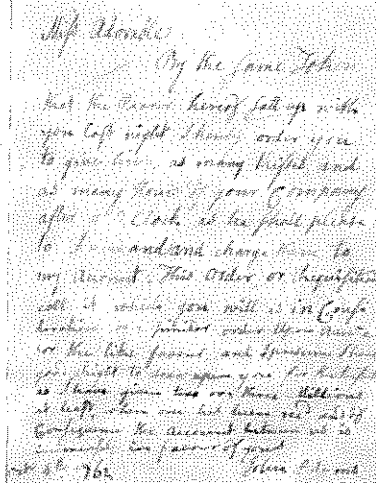 Miss Adorable
By the same Token
that the Bearer hereof satt up with
you last night I hereby order you
to give him, as many Kisses and
as many Hours of your Company
after 9 o Clock as he shall please
to Demand and charge them to
my Account. This Order or Requisition
call it which you will is in Consi-
deration of a similar order Upon
or the like favour, and I presume I have
good Right to draw upon you for the
as I have given two or three Millions
at least, when one has been rec'd and of
Consequence the Account between us is
immensely in favour of yours
4th 1762
John